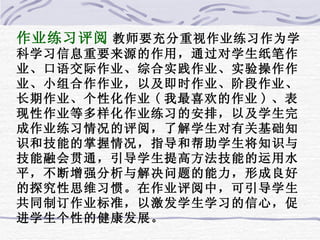 作业练习评阅 教师要充分重视作业练习作为学
科学习信息重要来源的作用，通过对学生纸笔作
业、口语交际作业、综合实践作业、实验操作作
业、小组合作作业，以及即时作业、阶段作业、
长期作业、个性化作业（我最喜欢的作业）、表
现性作业等多样化作业练习的安排，以及学生完
成作业练习情况的评阅，了解学生对有关基础知
识和技能的掌握情况，指导和帮助学生将知识与
技能融会贯通，引导学生提高方法技能的运用水
平，不断增强分析与解决问题的能力，形成良好
的探究性思维习惯。在作业评阅中，可引导学生
共同制订作业标准，以激发学生学习的信心，促
进学生个性的健康发展。